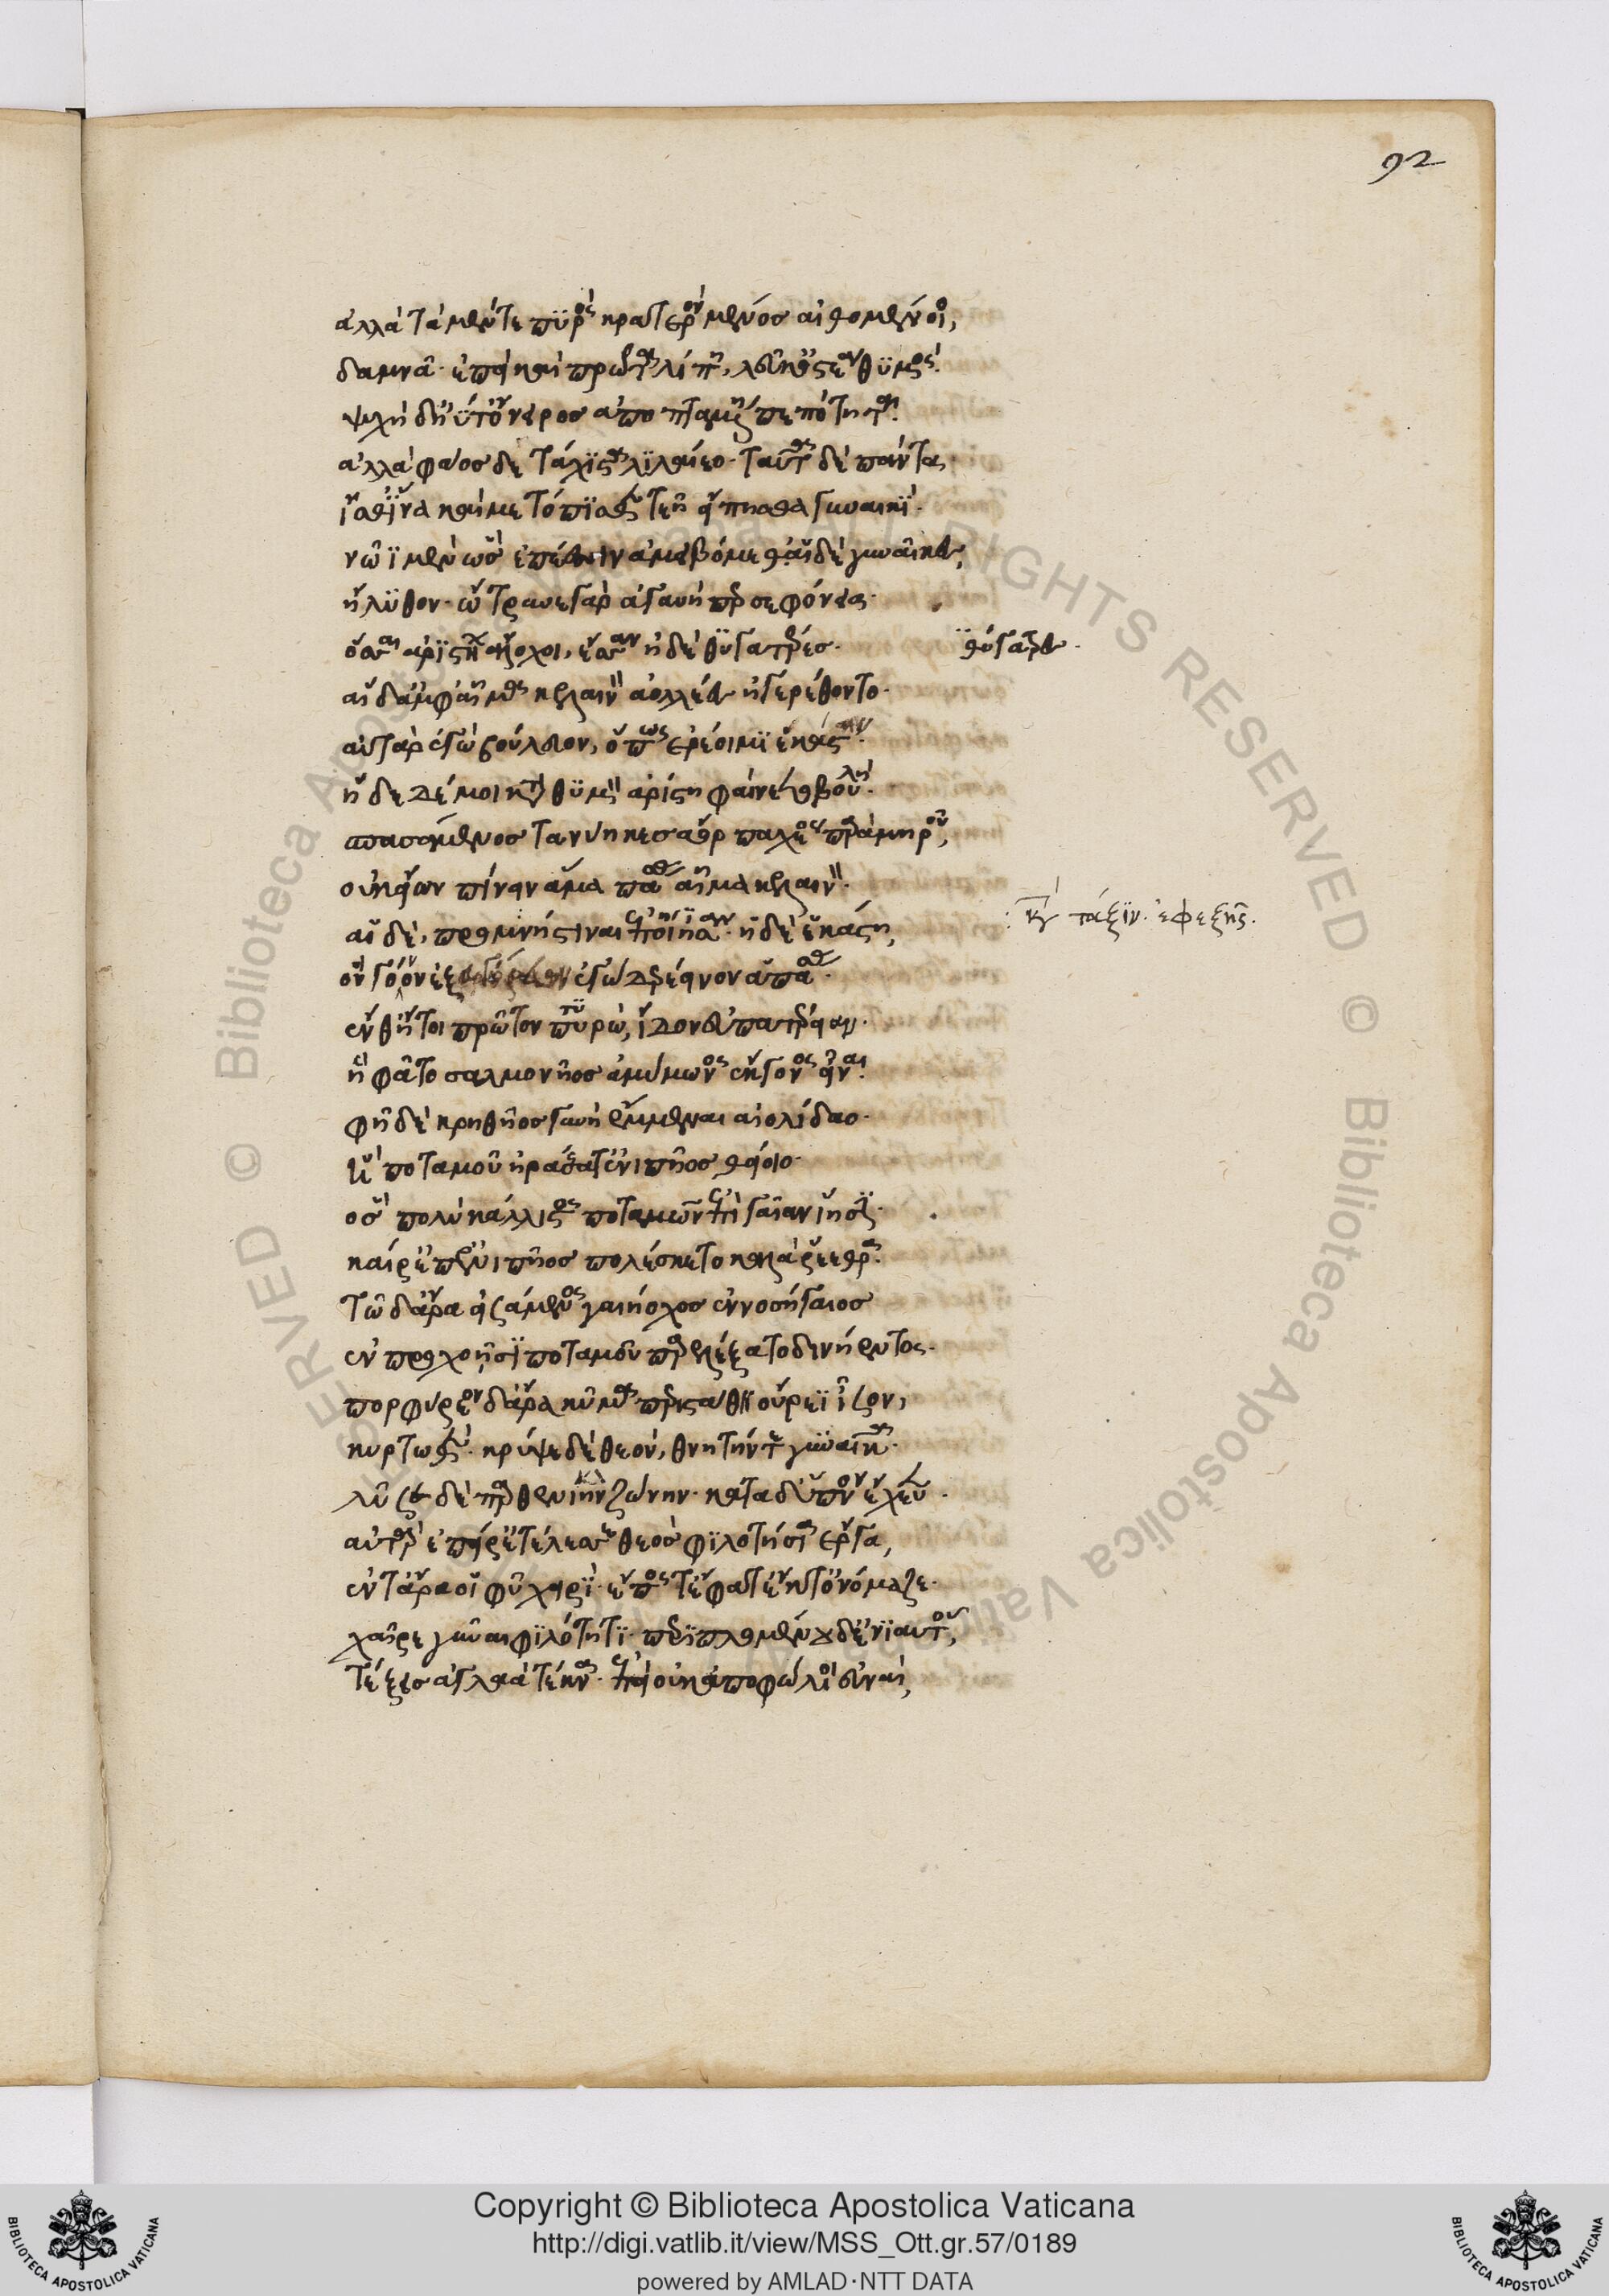 92
ἀλλὰ τὰ μέν τε πϋρὸς κρατερὸν μένος αἰθομένοιο,
δαμνᾶ· ἐπεί κε πρῶτα λίπῃ, λεύκ' ὀστέα θϋμός·
ψυχὴ δ' ἠΰτ' ὄνειρος ἀποπταμένη πεπότηται·
ἀλλὰ φάοσδε τάχϊστα λϊλαίεο· ταῦτα δὲ πάντα
ἴσθ' ἵνα καὶ μετόπϊσθεν τεῇ εἴπησθα γυναικϊ·
νῶϊ μὲν ὡς ἐπέεσσιν ἀμειβόμεθ'· αἱ δὲ γυναῖκες,
ἤλϋθον· ὤτρυνε γὰρ ἀγαυὴ περσεφόνεια·
ὅσσαι ἀρϊστήων ἄλοχοι, ἔσαν ἠδὲ θϋγατρές·
θύγατρες·
αἱ δ' ἀμφ' αἷμα κελαινὸν ἀολλέες ἠγερέθοντο·
αὐτὰρ ἐγὼ βούλευον, ὅπως ἐρέοιμϊ ἑκάστην·
ἥδε δέ μοι κατὰ θϋμὸν ἀρίστη φαίνετο βουλή·
σπασσάμενος τανύηκες ἄορ παχέος παρὰ μηροῦ,
οὐκ εἴων πίνειν ἅμα πάσας αἷμα κελαινόν·
κατὰ τάξϊν· ἐφεξῆς·
αἱ δὲ, προμνηστῖναι ἐπήϊσαν· ἠδὲ ἑκάστη,
ὃν γόνον ἐξ ἐγὼ δ' ἐρέεινον ἁπάσας·
ἔνθ' ἤτοι πρῶτον τϋρὼ, ἴδον εὐπατέρειαν·
ἣ φάτο σαλμονῆος ἀμύμονος ἔκγονος εἶναι·
φῆ δὲ κρηθῆος γυνὴ ἔμμεναι αἰολίδαο·
ἣ ποταμοῦ ἠράσσατ' ἐνιπῆος θείοιο·
ὃς πολὺ κάλλιστος ποταμῶν ἐπὶ γαῖαν ἵησϊ·
καί ῥ' ἐπ' ἐνιπῆος πολέσκετο καλὰ ῥέεθρα·
τῷ δ' ἄρα εἰσάμενος γαιήοχος ἐννοσήγαιος
ἐν προχοῇσϊ ποταμοῦ παρελέξατο δινήεντος·
πορφύρεον δ' ἄρα κῦμα περιστάθη οὔρεϊ ἶσον,
κυρτωθέν· κρύψε δὲ θεὸν, θνητήν τε γυναῖκα·
λῦσε δὲ παρθενίην ζώνην· κατὰ δ' ὕπνον ἔχευεν·
αὐτὰρ ἐπεί ῥ' ἐτέλεσσε θεὸς φϊλοτήσϊα ἔργα,
ἔν τ' ἄρα οἱ φῦ χειρϊ· ἔπος τ' ἔφατ' ἔκ τ' ὀνόμαζε·
χαῖρε γύναι φϊλότητϊ· περϊπλομένου δ' ἐνϊαυτοῦ,
τέξεις ἀγλαὰ τέκνα· ἐπεὶ οὐκ ἀποφώλιοι εὐναὶ,
Copyright © Biblioteca Apostolica Vaticana
http://digi.vatlib.it/view/MSS_Ott.gr.57/0189
powered by AMLAD·NTT DATA